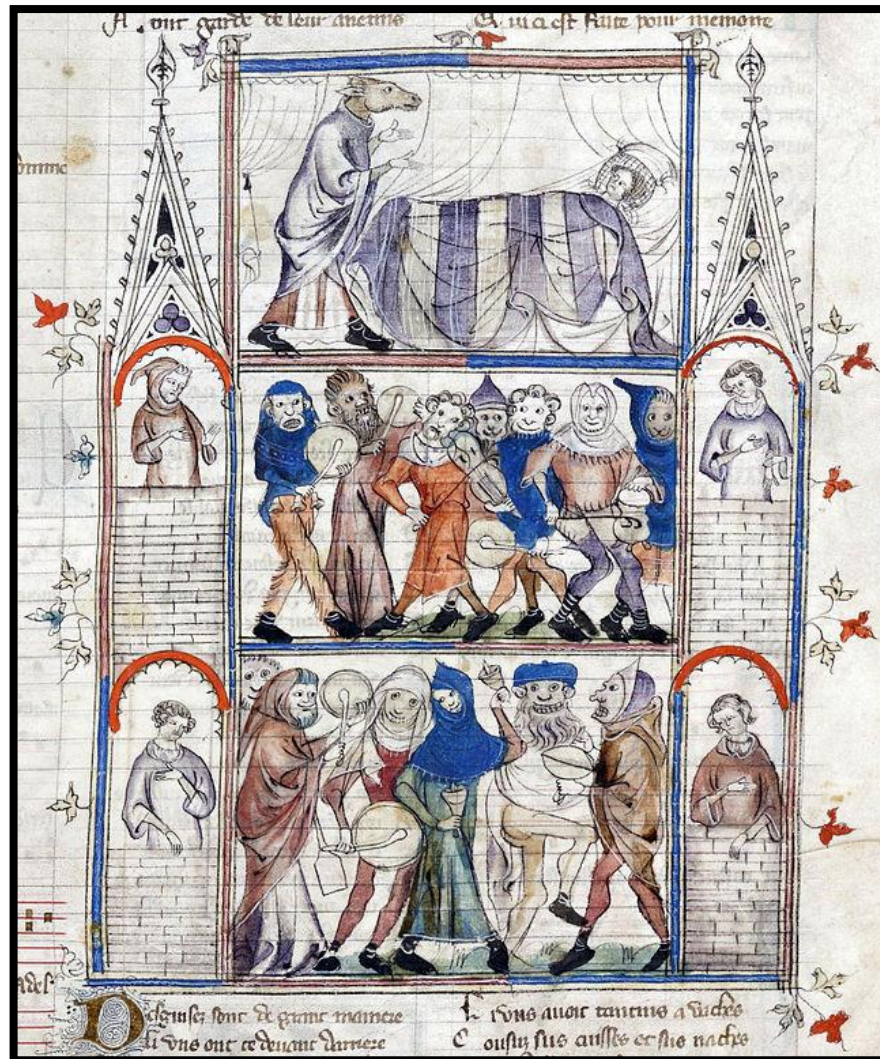 A ont garde de leur anemis
Q ui ci est faite pour memoire
omme
ades
Desguisez sont de grant maniere
Li vns ont ce deuant darriere
L i vns auoit tantins a vaches
C ousuz sus cuisses et sus naches